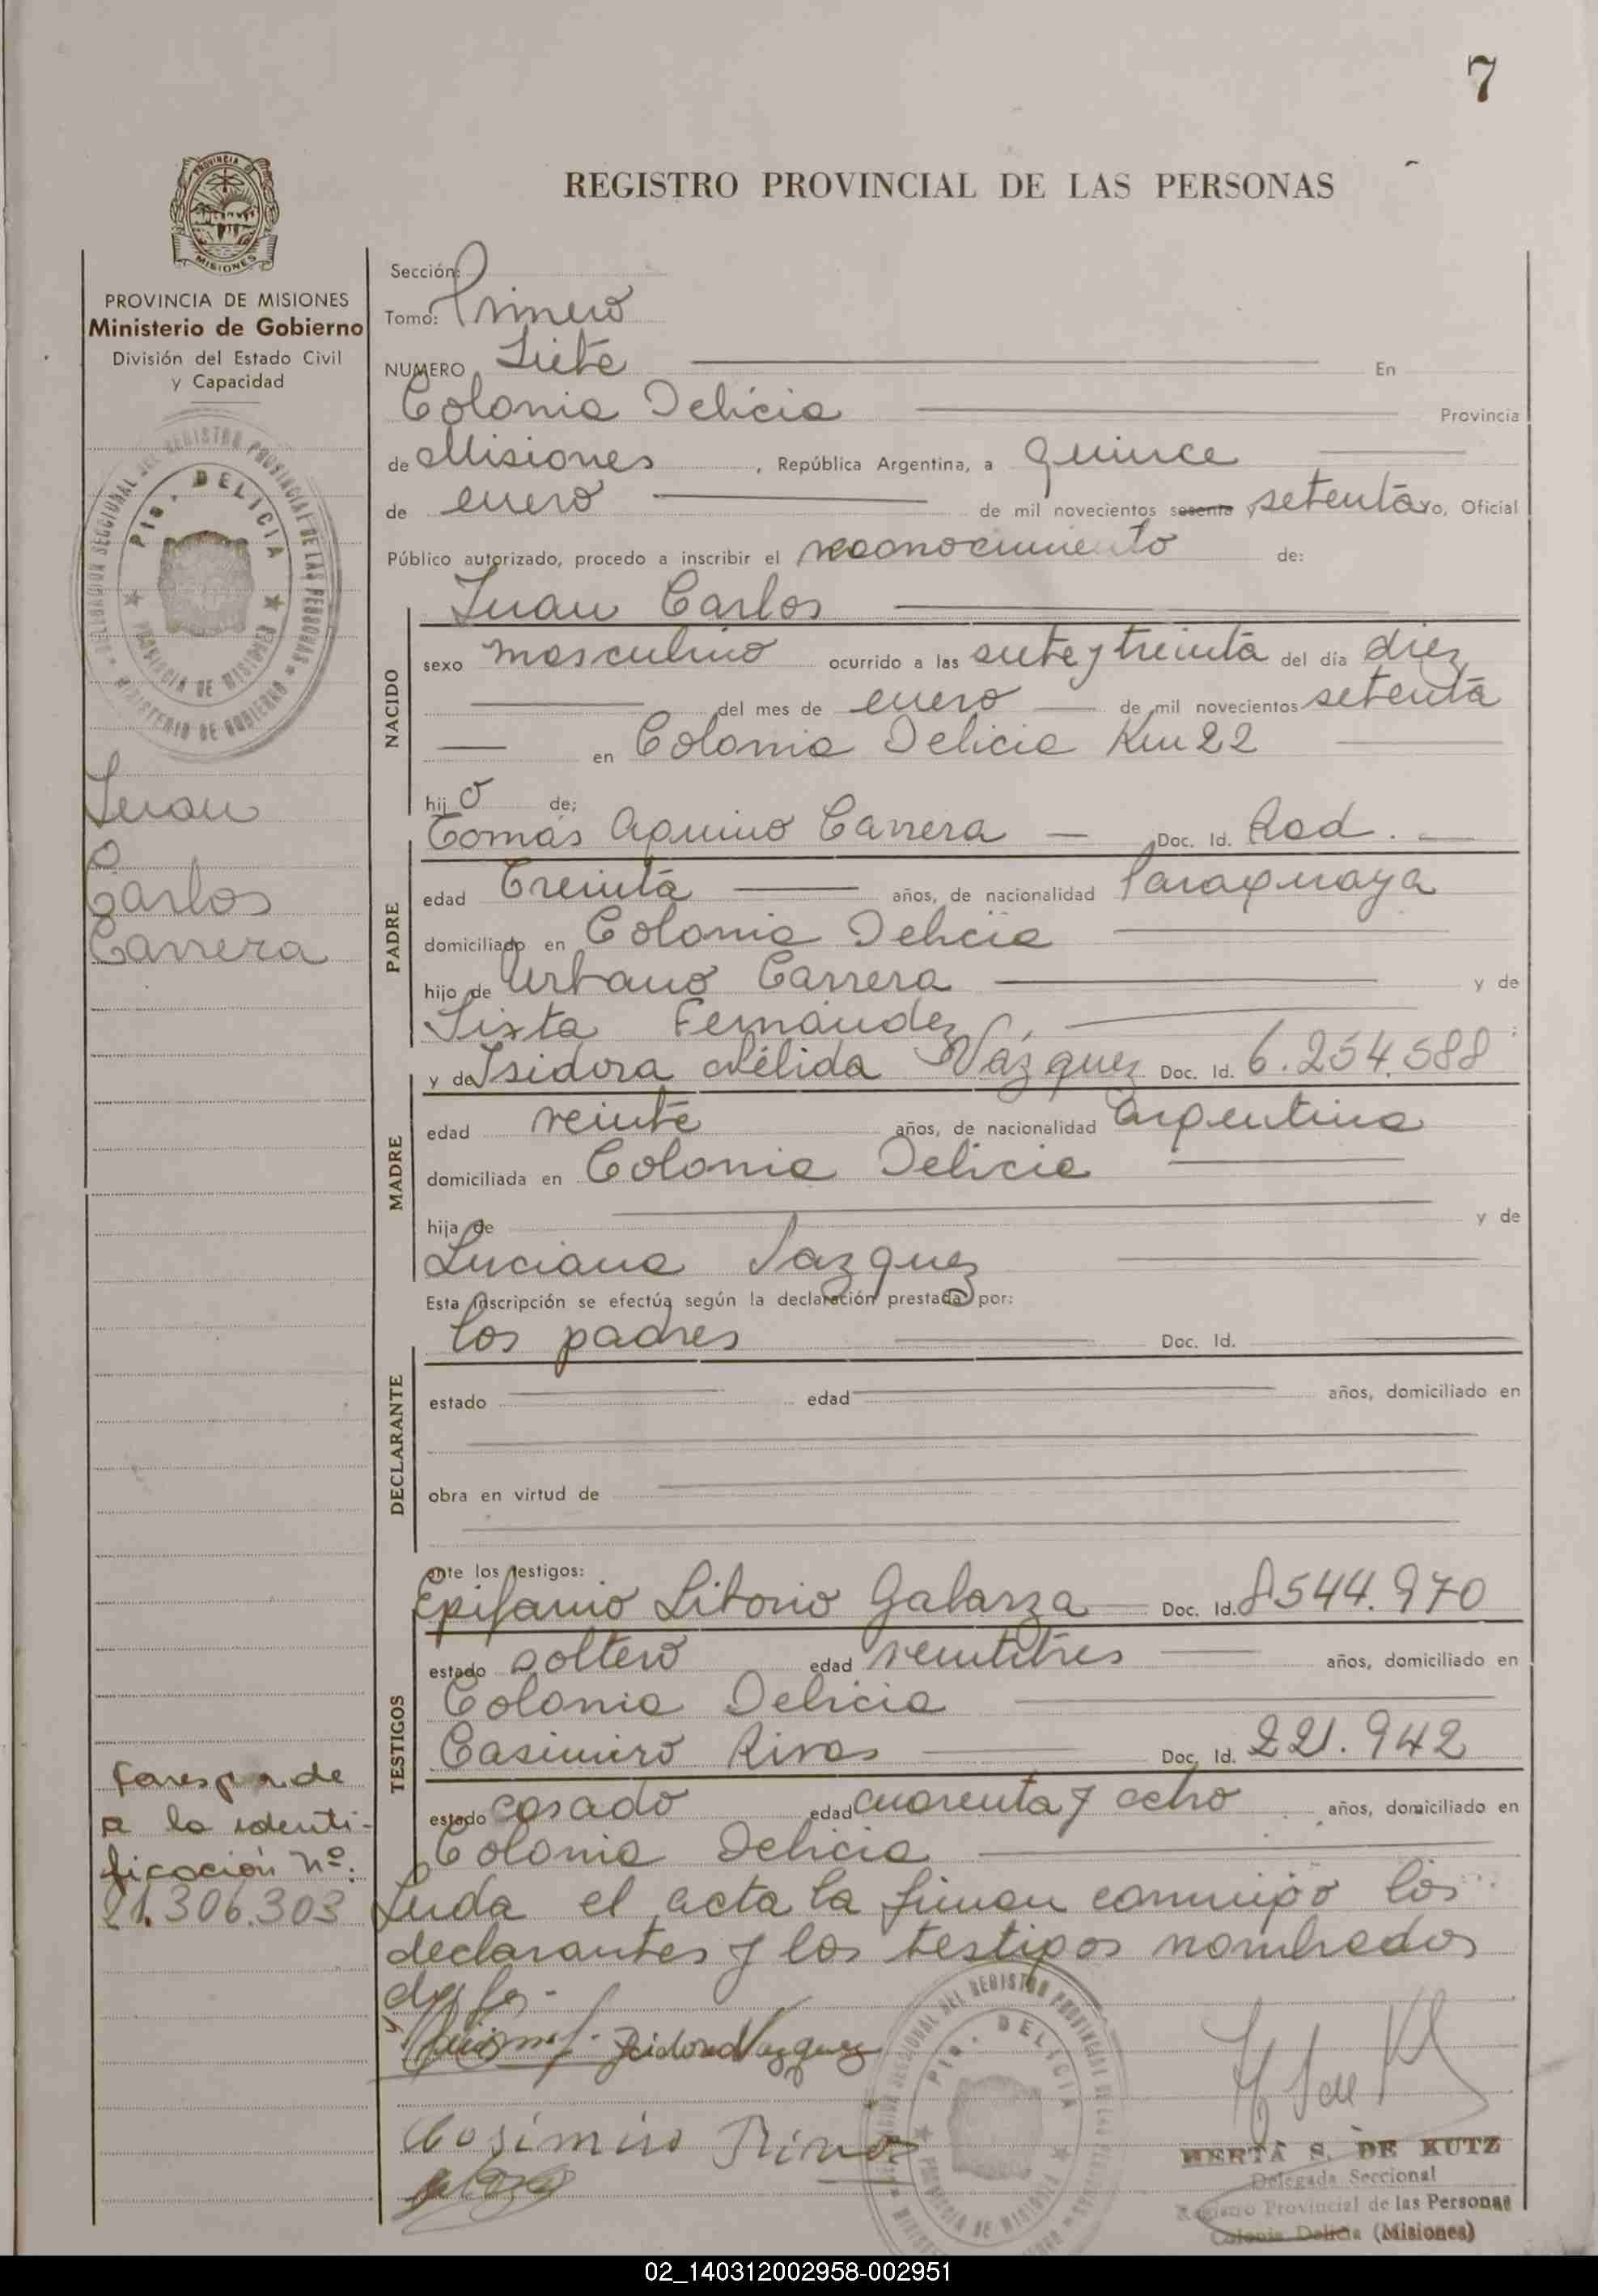 7
REGISTRO PROVINCIAL DE LAS PERSONAS
PROVINCIA DE MISIONES
MISIONES
PROVINCIA DE MISIONES
Ministerio de Gobierno
División del Estado Civil
y Capacidad
DELEGACION SECCIONAL DEL REGISTRO PROVINCIAL DE LAS PERSONAS
MINISTERIO DE GOBIERNO
Pto. DELICIA
PROVINCIA DE MISIONES
Juan
Carlos
Carrera
Corresponde
a la identi-
ficación Nº:
21.306.303
Sección:
Tomo: Primero
NUMERO Siete En
Colonia Delicia Provincia
de Misiones, República Argentina, a quince
de enero de mil novecientos sesenta y setenta yo, Oficial
Público autorizado, procedo a inscribir el reconocimiento de:
NACIDO
Juan Carlos
sexo masculino ocurrido a las siete y treinta del día diez
del mes de enero de mil novecientos setenta
en Colonia Delicia Km 22
hijo de;
PADRE
Tomás Aquino Carrera Doc. Id. Rad.
edad Treinta años, de nacionalidad Paraguaya
domiciliado en Colonia Delicia
hijo de Urbano Carrera y de
Sixta Fernández;
MADRE
y de Isidora Nélida Vázquez Doc. Id. 6.254.588
edad veinte años, de nacionalidad argentina
domiciliada en Colonia Delicia
hija de y de
Luciana Vazquez
Esta inscripción se efectúa según la declaración prestada por:
DECLARANTE
los padres Doc. Id.
estado edad años, domiciliado en
obra en virtud de
ante los testigos:
TESTIGOS
Epifanio Litorio Galarza Doc. Id. 8544.970
estado soltero edad veintitres años, domiciliado en
Colonia Delicia
Casimiro Rivas Doc. Id. 221.942
estado casado edad cuarenta y ocho años, domiciliado en
Colonia Delicia
Leída el acta la firman conmigo los
declarantes y los testigos nombrados
doy fe.-
Isidora Vazquez
Casimiro Rivas
DELEGACION SECCIONAL DEL REGISTRO PROVINCIAL DE LAS PERSONAS
Pto. DELICIA
PROVINCIA DE MISIONES
H S de K
HERTA S. DE KUTZ
Delegada Seccional
Registro Provincial de las Personas
Colonia Delicia (Misiones)
02_140312002958-002951